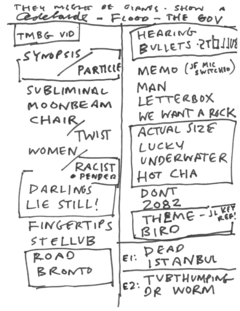 THEY MIGHT BE GIANTS - SHOW A
Adelaide - FLOOD - THE GOV
TMBG VID
SYNOPSIS
PARTICLE
SUBLIMINAL
MOONBEAM
CHAIR
TWIST
WOMEN
RACIST
DARLINGS
LIE STILL!
FINGERTIPS
STELLUB
ROAD
BRONTO
HEARING
BULLETS
MEMO (IF MIC SWITCHED)
MAN
LETTERBOX
WE WANT A ROCK
ACTUAL SIZE
LUCKY
UNDERWATER
HOT CHA
DONT
2082
THEME - JL KEY
BIRD
E1: DEAD
ISTANBUL
E2: TUBTHUMPING
DR WORM